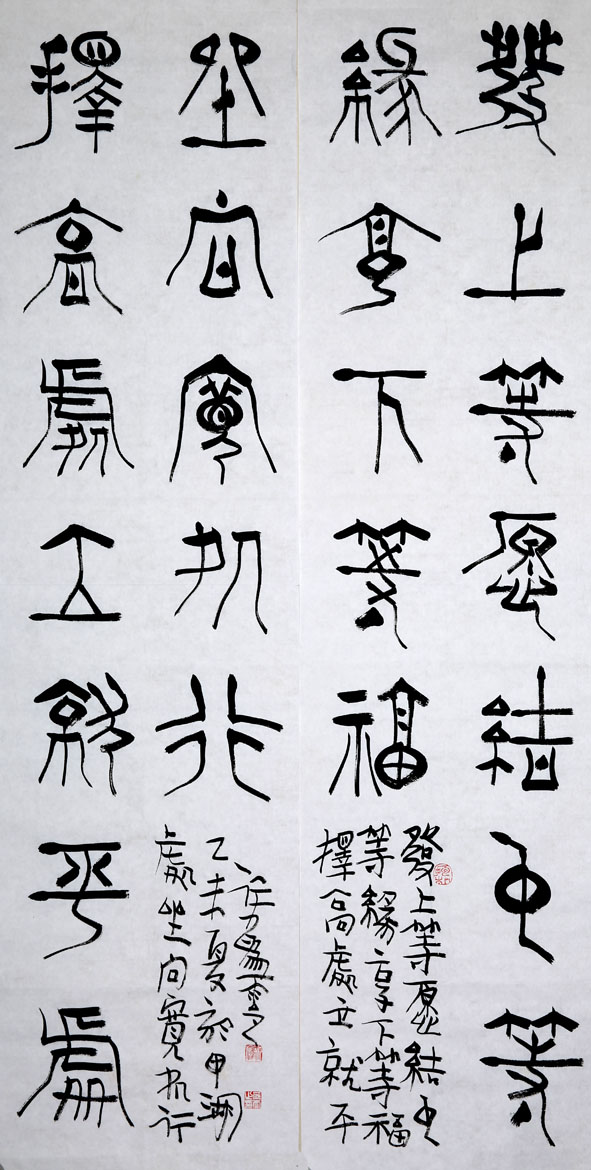 發上等愿結中等
緣享下等福
發上等愿結中
等緣享下等福
擇高處立就平
擇高處立就平處
坐向寬処行
處坐向寬処行
乙未夏於甲湖